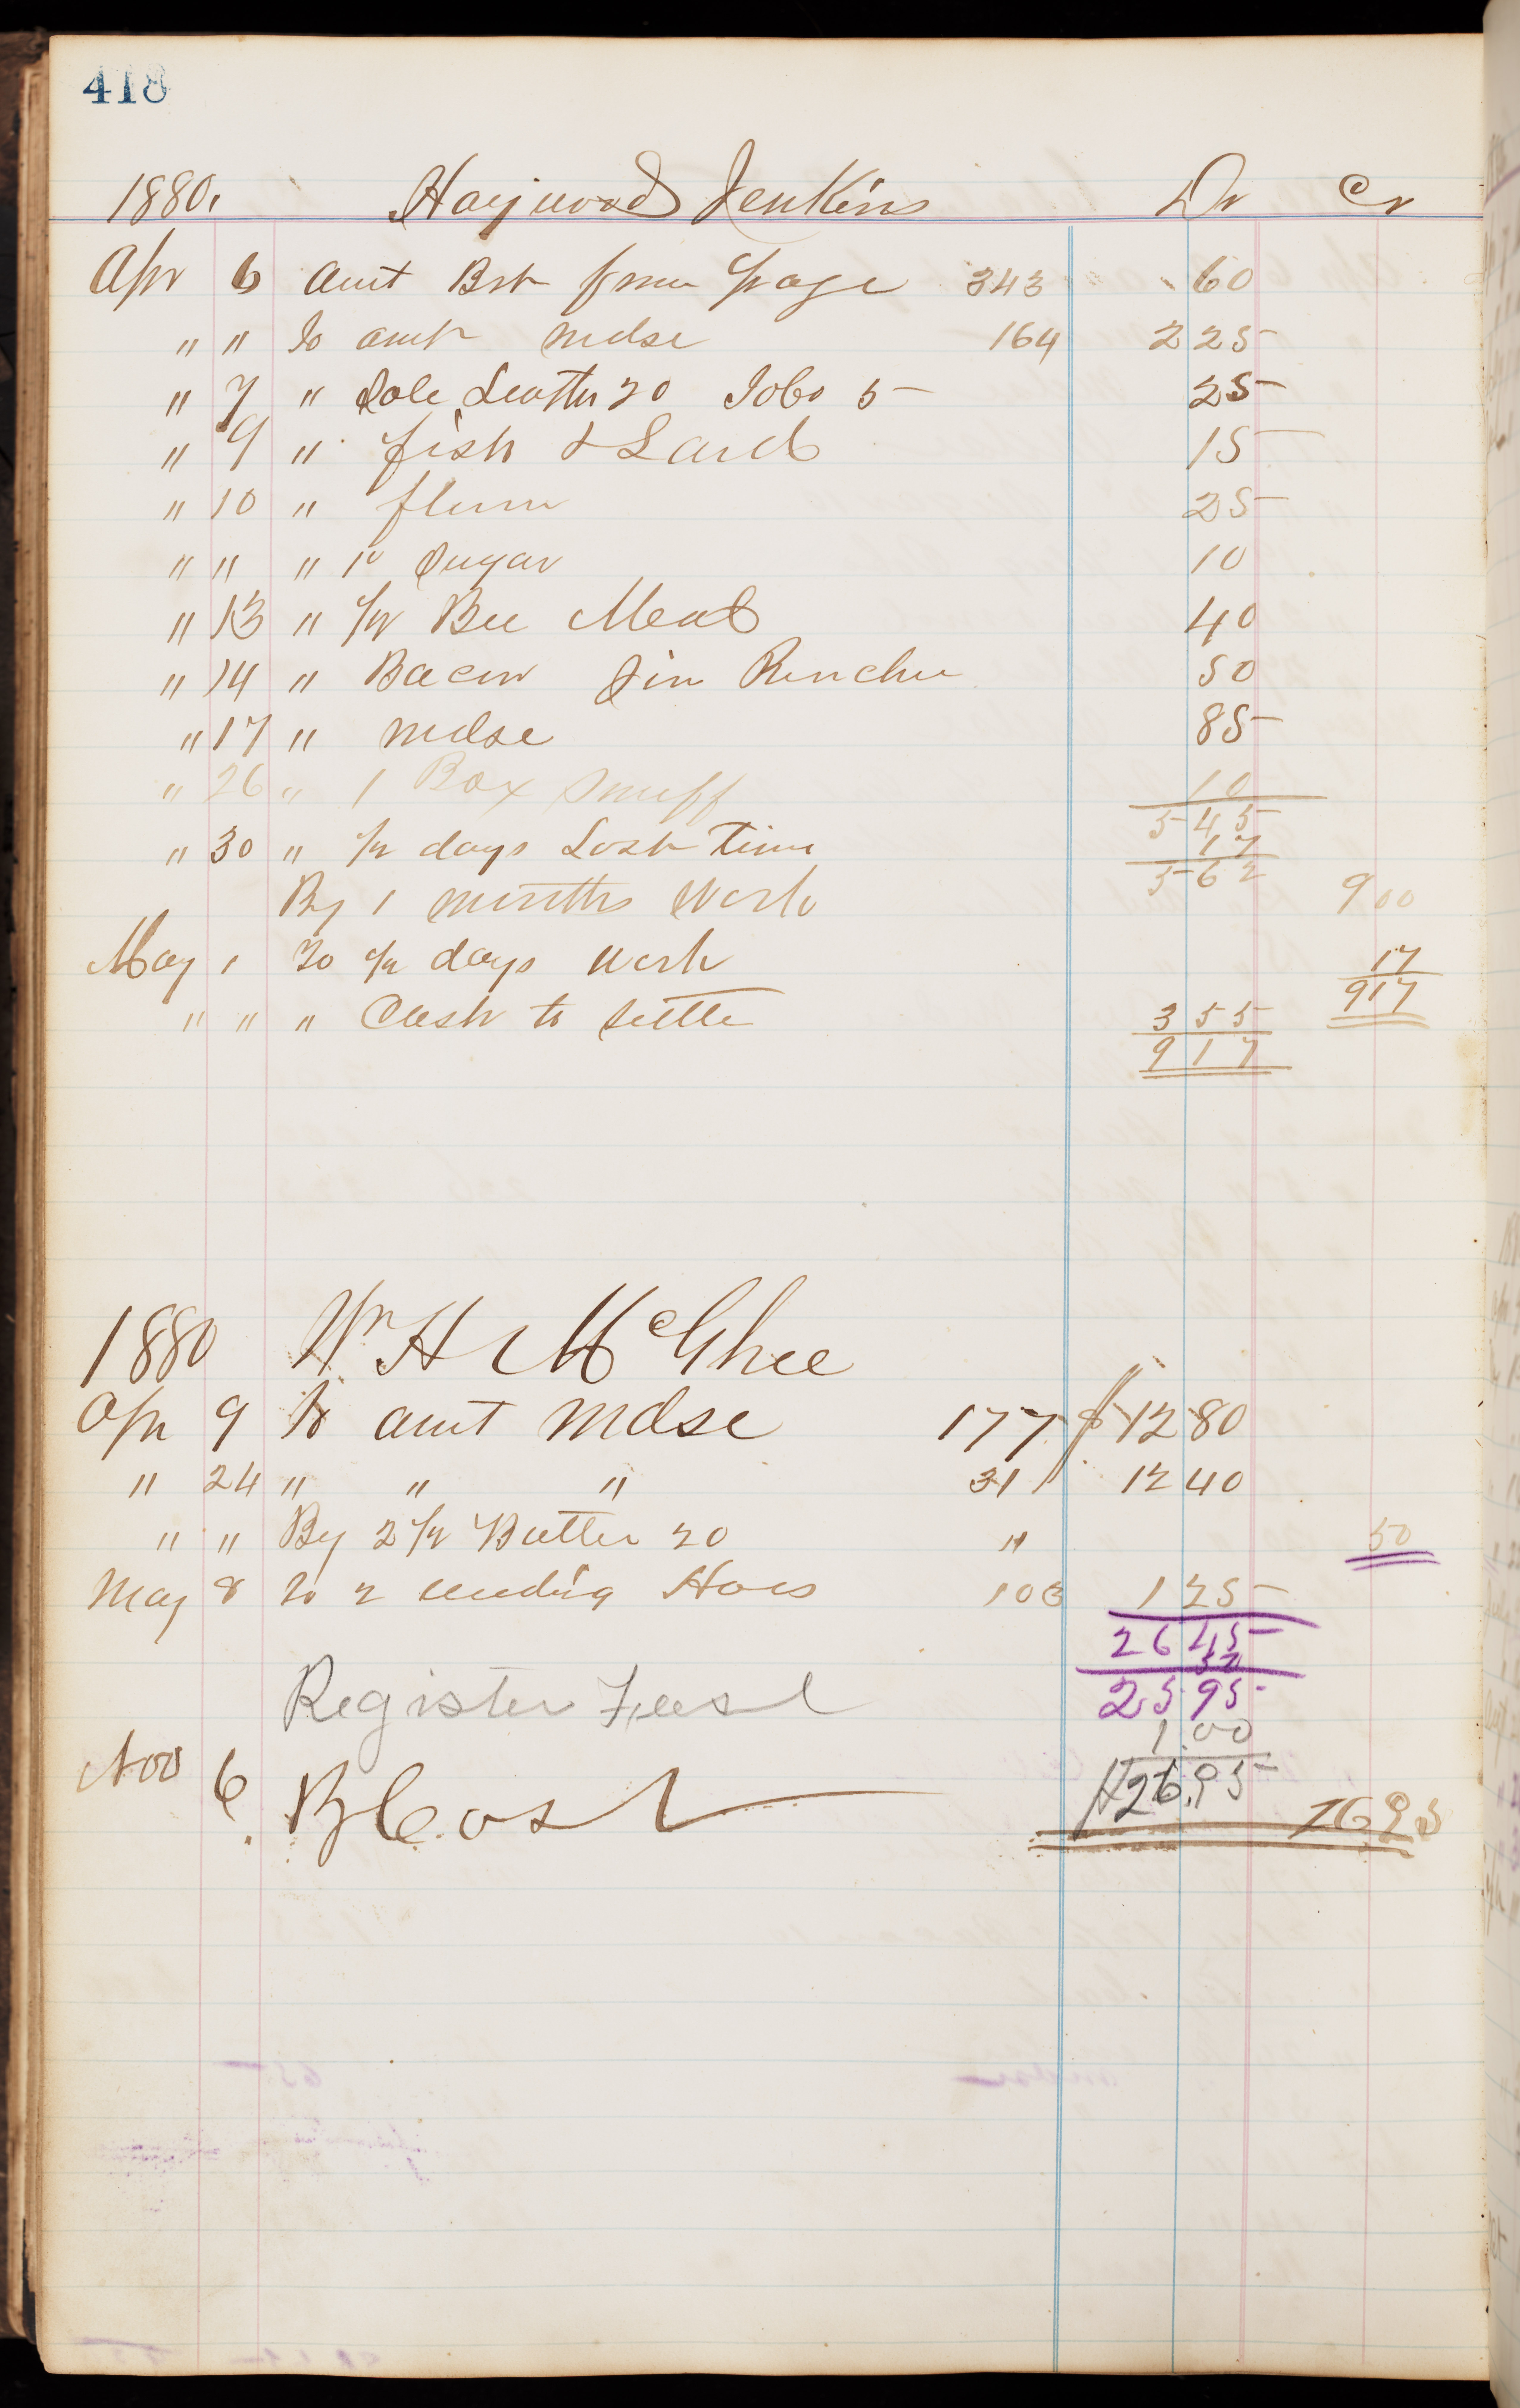 418
1880. Haywood Jenkins Dr Cr
Apr 6 Amt Brt from page 343 60
" " To amt mdse 164 2 25
" 7 " Sole Leather 20 Tobo 5 25
" 9 " fish & Lard 15
" 10 " flour 25
" " " 1 lb Sugar 10
" 13 " 1/2 Bu Meal 40
" 14 " Bacon Jim 50
" 17 " mdse 85
" 26 " 1 Box Snuff 10
5 45
" 30 " 1/2 days Lost Time 17
5 62
By 1 months Work 9 00
May 1 To 1/2 days Work 17
9 17
" " " Cash to settle 3 55
9 17
1880 Wm H McGhee
Apr 9 To amt Mdse 177 $ 12 80
" 24 " " " 31 12 40
" " By 2 1/2 Butter 20 " 50
May 8 To 2 weeding Hoes 103 1 25
26 45
50
25 95
Register Fees 1.00
26.95
Nov 6. By Cash 26 95